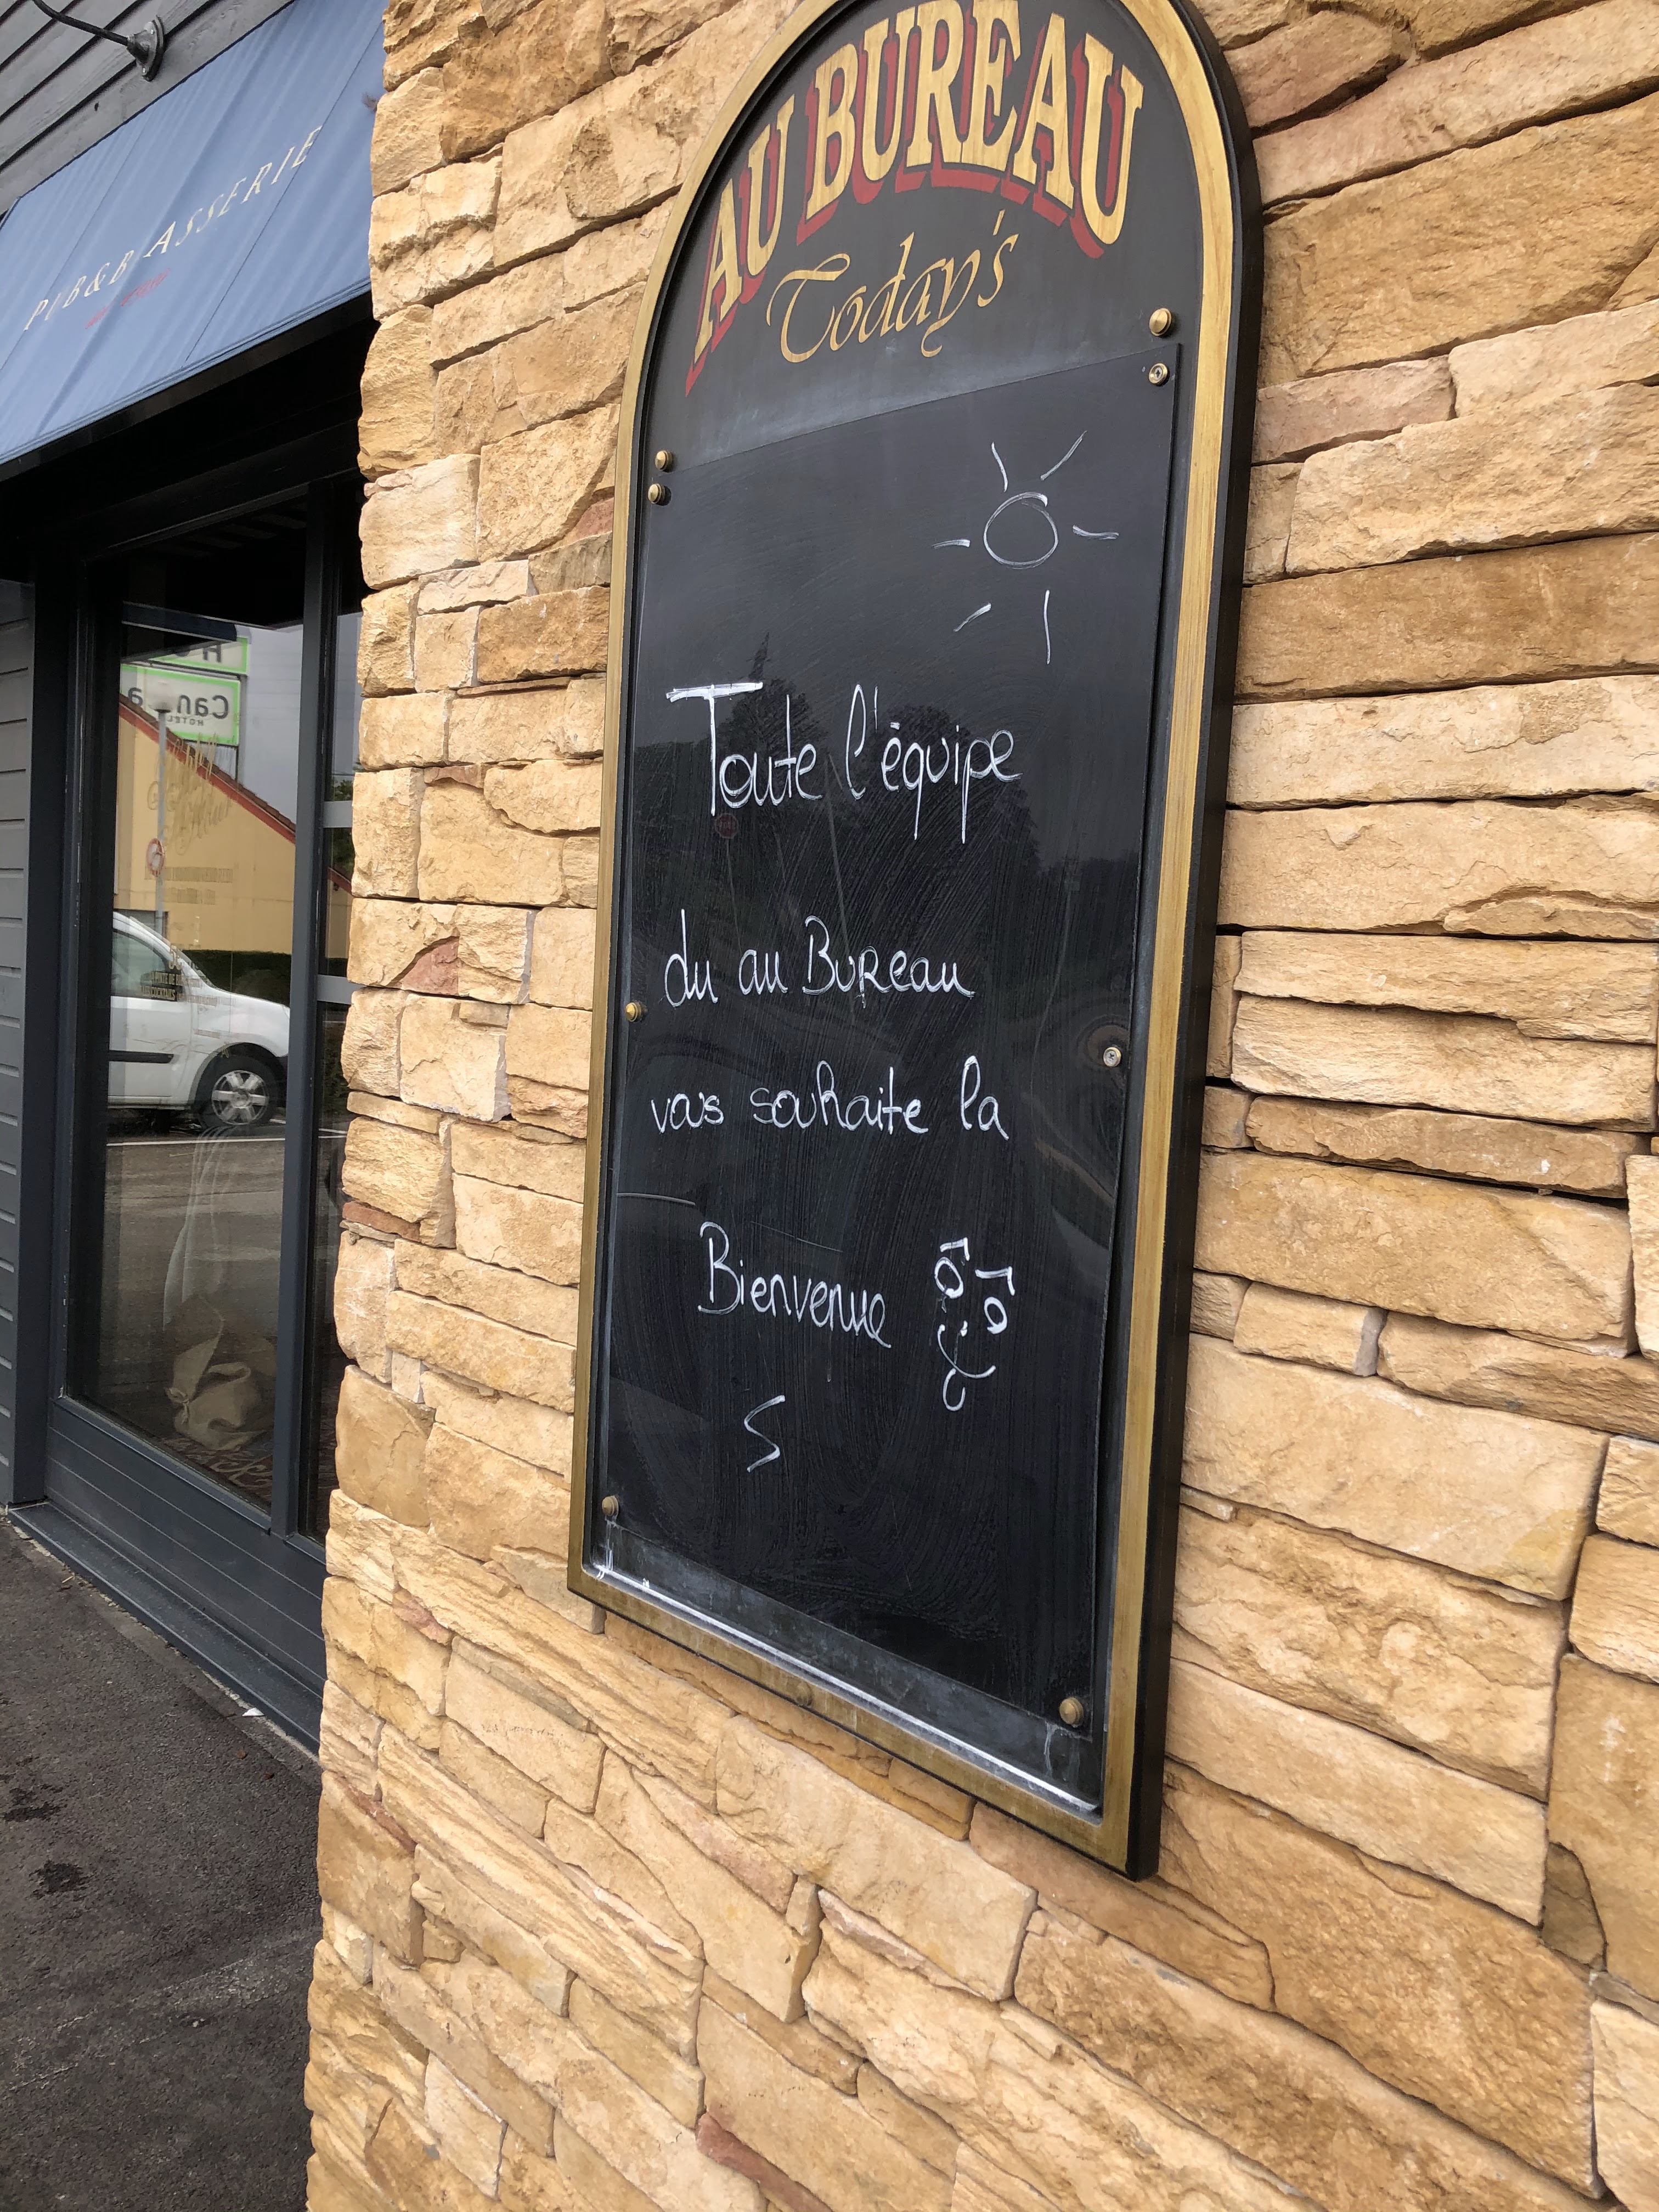 PUB & BRASSERIE
AU BUREAU
Today's
Toute l'équipe
du au Bureau
vous souhaite la
Bienvenue
HOTEL